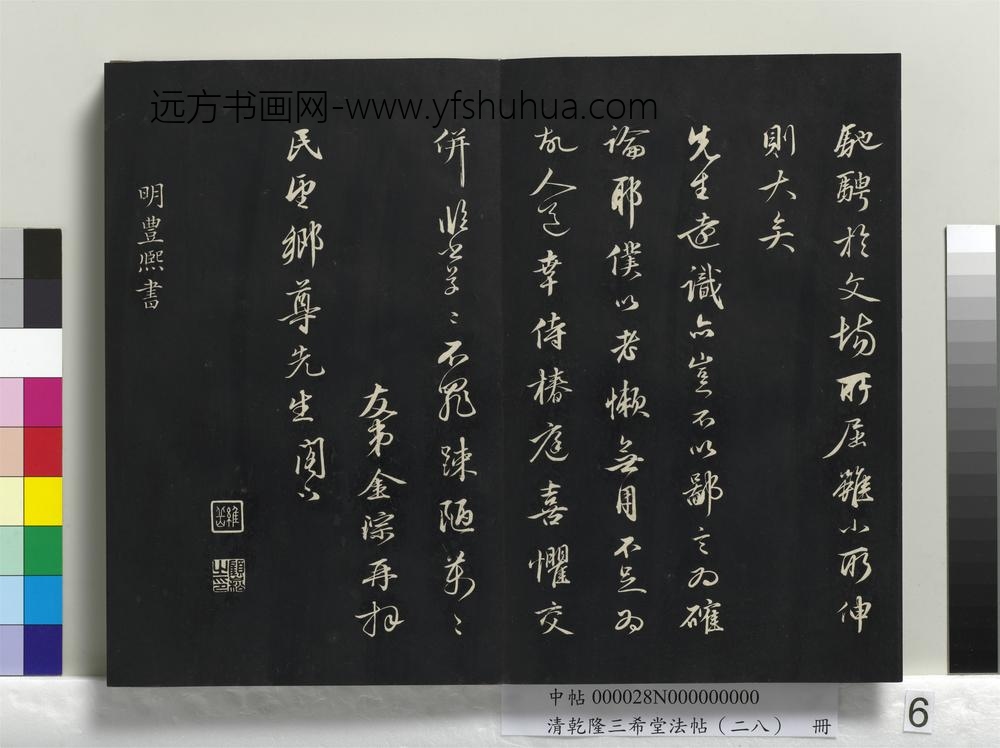 远方书画网-www.yfshuhua.com
馳騁於文場所屈雖小所伸
則大矣
先生達識亦豈不以鄙言為確
論耶僕以老懶無用不足為
故人道幸侍椿庭喜懼交
併臨書草〻不罪踈陋萬〻
友弟金琮再拜
民望鄉尊先生閣下
明豊熙書
中帖 000028N000000000
清乾隆三希堂法帖（二八） 冊
6